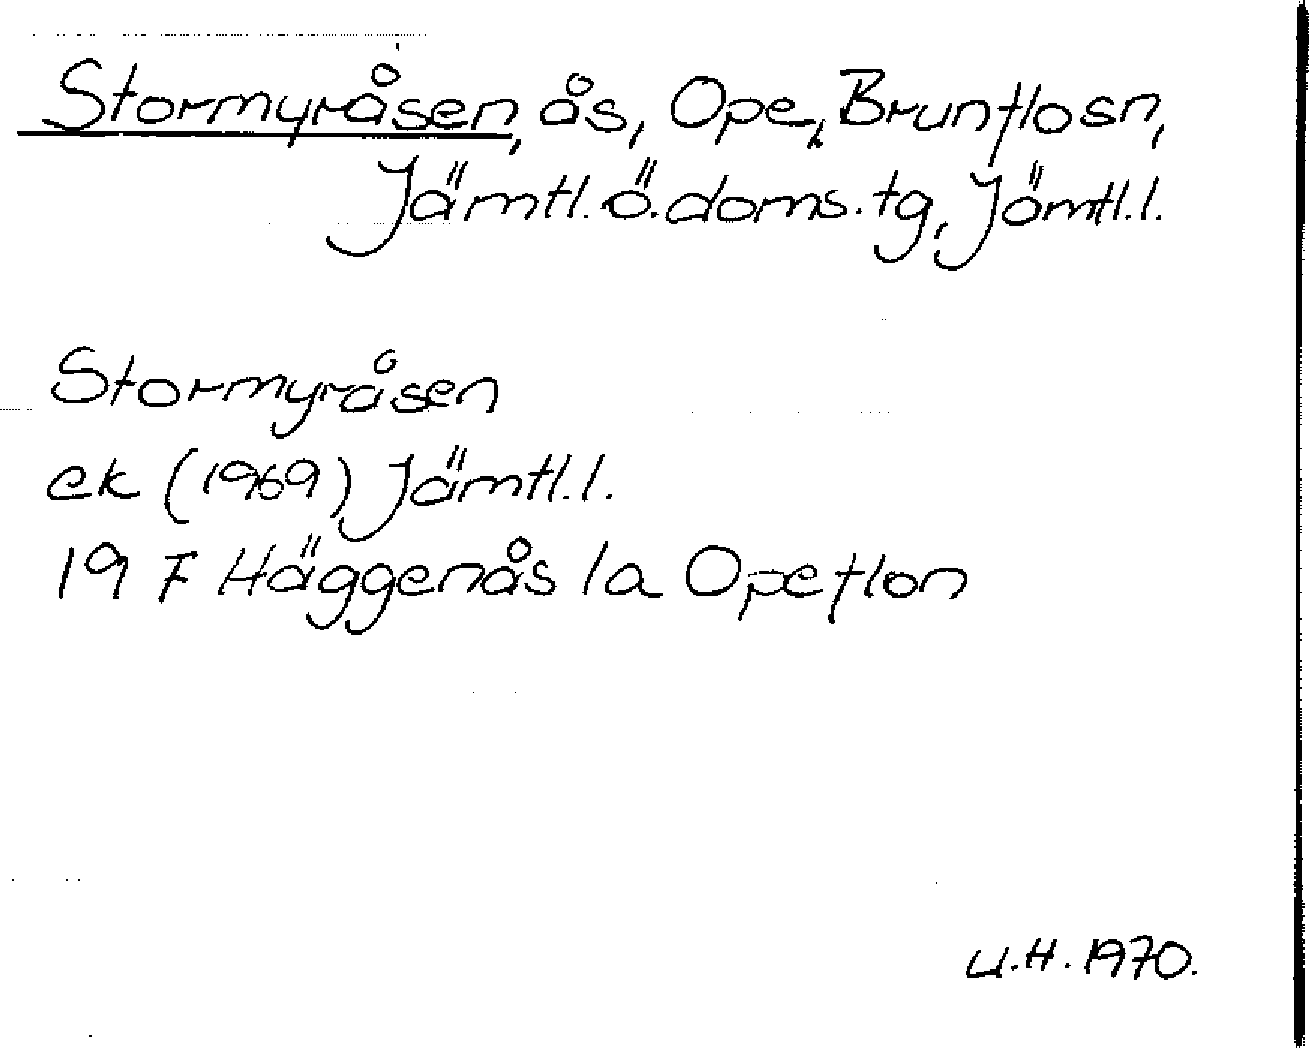 Stormyråsen, ås, Ope, Brunflosn,
Jämtl. ö. doms. tg, Jämtl. l.
Stormyråsen
ek (1969) Jämtl. l.
19 F Häggenås 1a Opeflon
U.H. 1970.